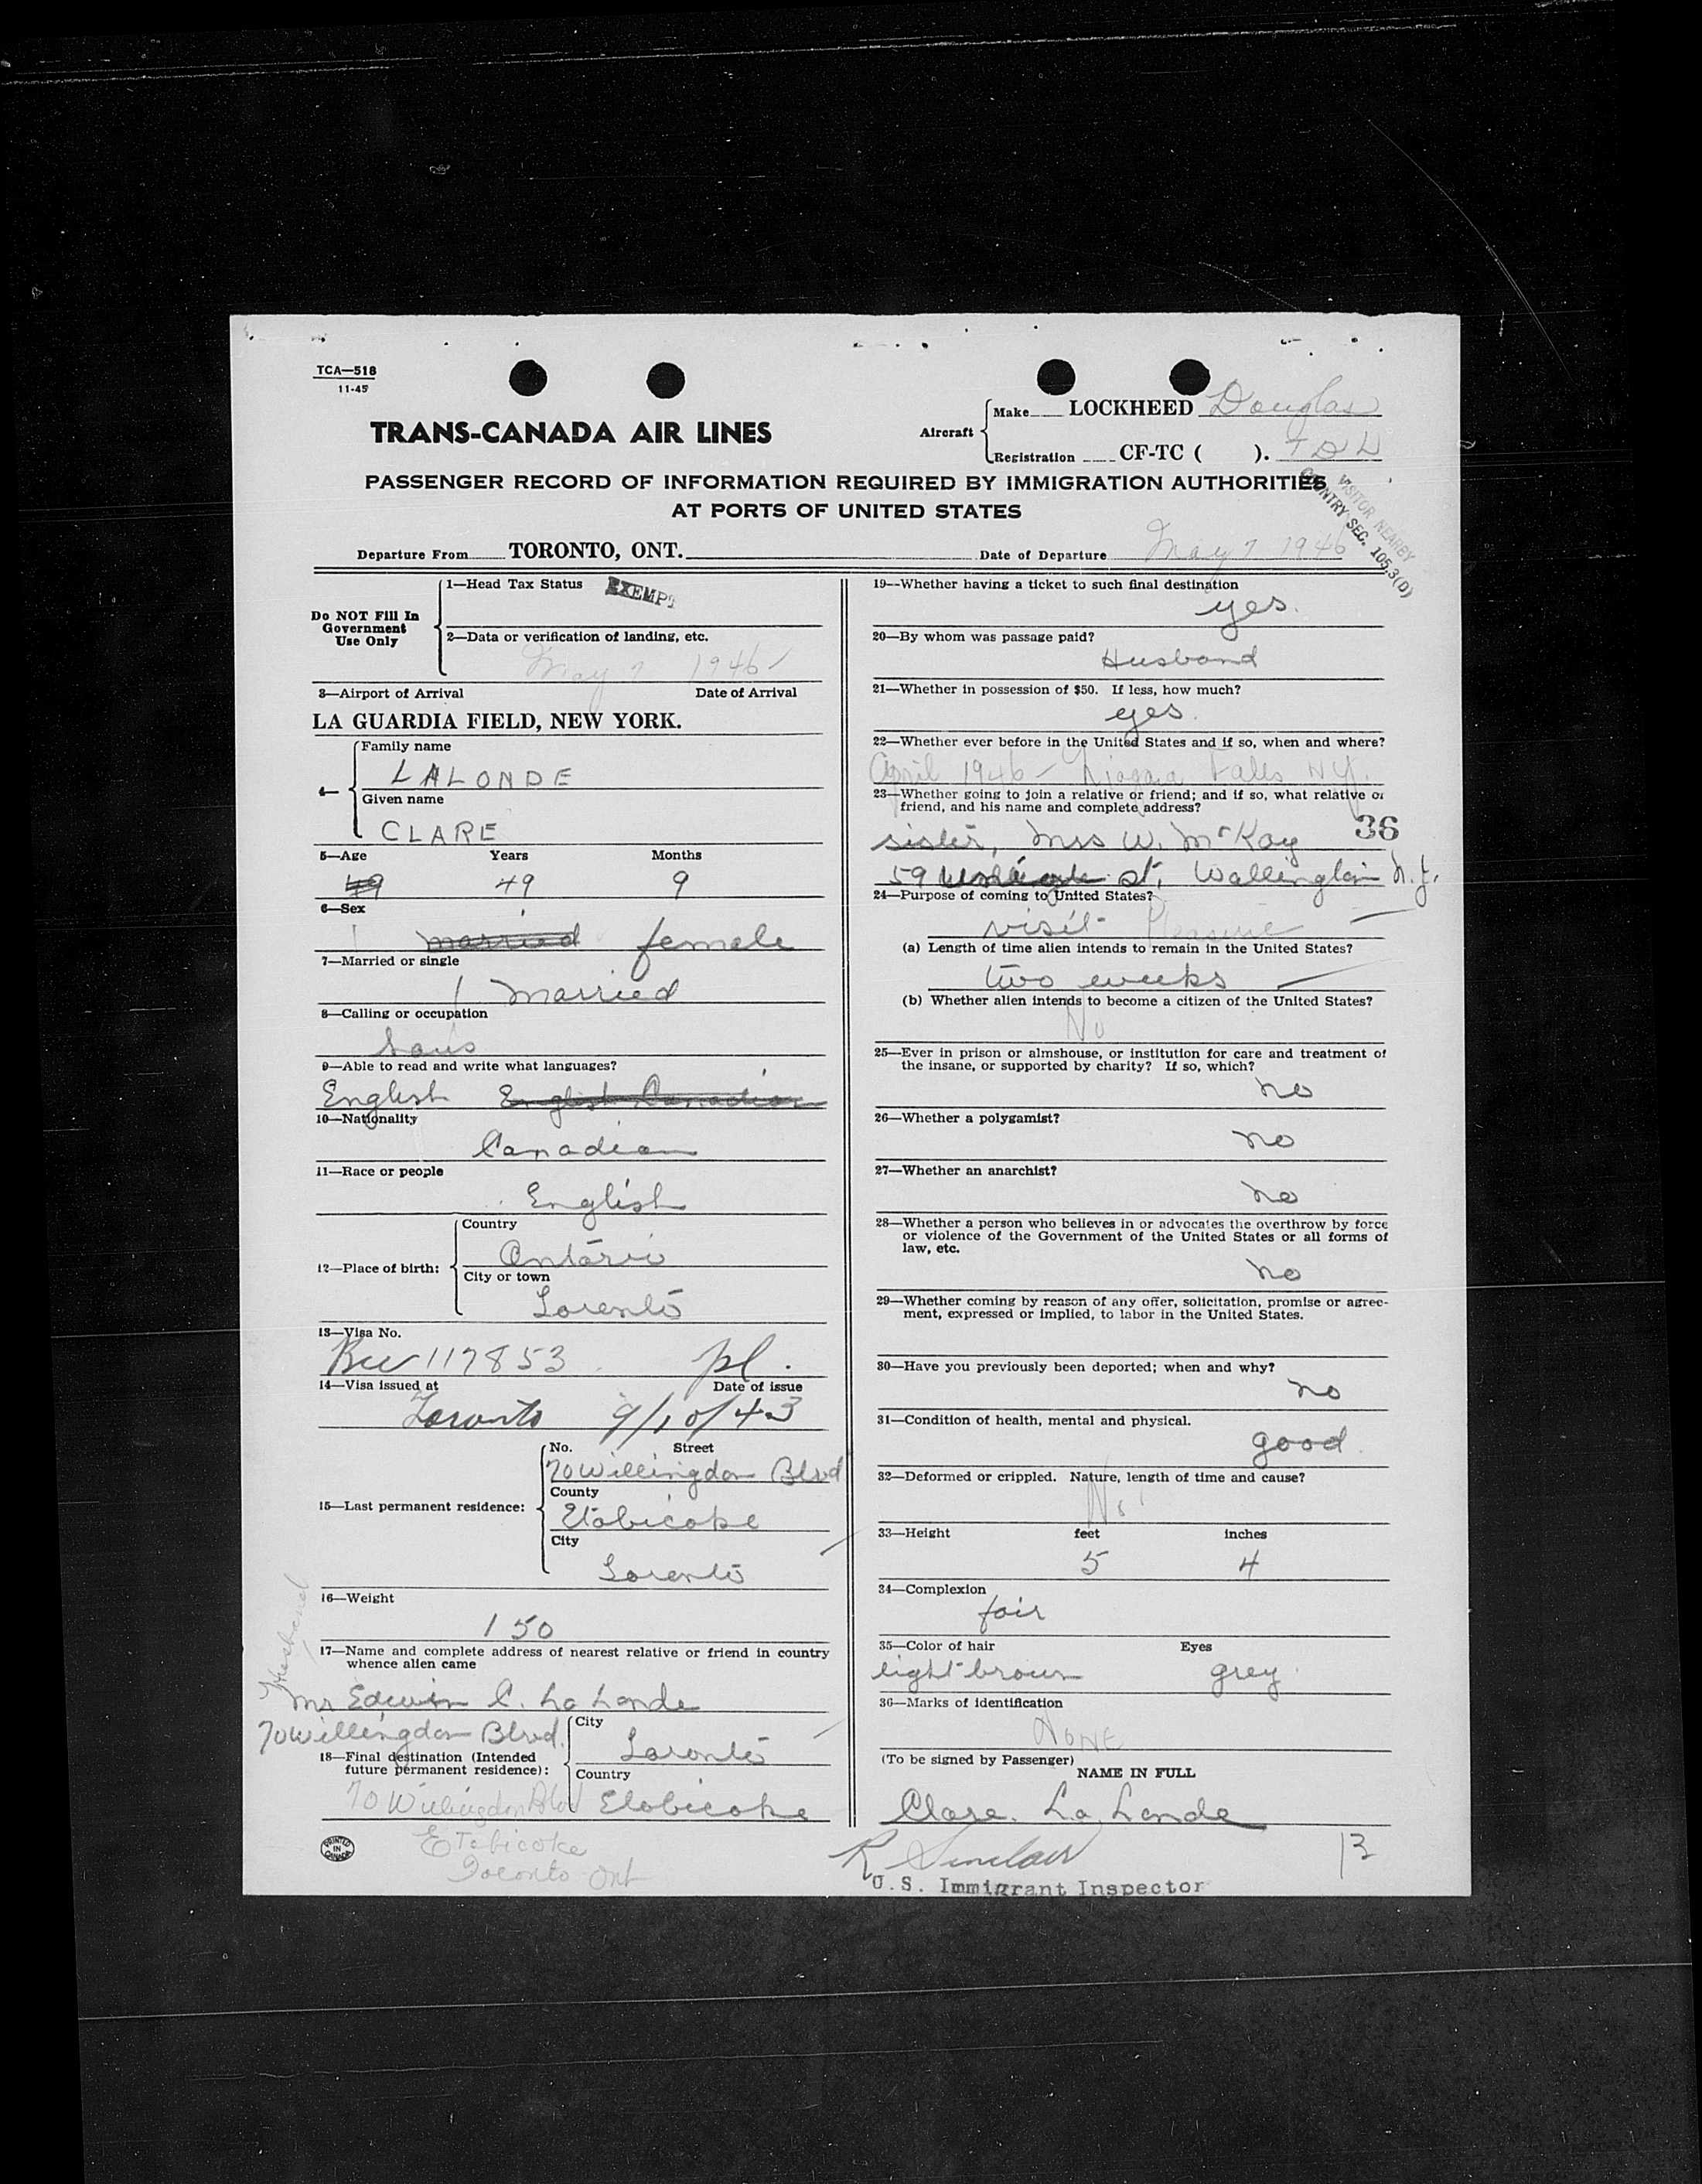 TCA—518
11-45
TRANS-CANADA AIR LINES
Aircraft
Make LOCKHEED Douglas
Registration CF-TC ( ). TDL
PASSENGER RECORD OF INFORMATION REQUIRED BY IMMIGRATION AUTHORITIES
AT PORTS OF UNITED STATES
VISITOR NEARBY
COUNTRY SEC. 105.3(D)
Departure From TORONTO, ONT. Date of Departure May 7 1946
Do NOT Fill In
Government
Use Only
1—Head Tax Status EXEMPT
2—Data or verification of landing, etc.
May 7 1946
3—Airport of Arrival Date of Arrival
LA GUARDIA FIELD, NEW YORK.
4—
Family name
LALONDE
Given name
CLARE
5—Age Years Months
49 49 9
6—Sex
married female
7—Married or single
Married
8—Calling or occupation
9—Able to read and write what languages?
English English Canadian
10—Nationality
Canadian
11—Race or people
English
12—Place of birth:
Country
Ontario
City or town
Toronto
13—Visa No.
117853
14—Visa issued at Date of issue
Toronto 9/10/43
15—Last permanent residence:
No. Street
70 Willingdon Blvd
County
Etobicoke
City
Toronto
16—Weight
150
17—Name and complete address of nearest relative or friend in country
whence alien came
Husband
Mr Edwin C. La Londe
70 Willingdon Blvd.
18—Final destination (Intended
future permanent residence):
City
Toronto
Country
70 Willingdon Blvd Etobicoke
Etobicoke
Toronto Ont
PRINTED
IN
CANADA
19—Whether having a ticket to such final destination
yes.
20—By whom was passage paid?
Husband
21—Whether in possession of $50. If less, how much?
yes.
22—Whether ever before in the United States and if so, when and where?
April 1946 - Niagara Falls NY.
23—Whether going to join a relative or friend; and if so, what relative or
friend, and his name and complete address?
36
sister, Mrs W. McKay
59 st, Wallington N.J.
24—Purpose of coming to United States?
visit Pleasure
(a) Length of time alien intends to remain in the United States?
two weeks
(b) Whether alien intends to become a citizen of the United States?
No
25—Ever in prison or almshouse, or institution for care and treatment of
the insane, or supported by charity? If so, which?
no
26—Whether a polygamist?
no
27—Whether an anarchist?
no
28—Whether a person who believes in or advocates the overthrow by force
or violence of the Government of the United States or all forms of
law, etc.
no
29—Whether coming by reason of any offer, solicitation, promise or agree-
ment, expressed or implied, to labor in the United States.
30—Have you previously been deported; when and why?
no
31—Condition of health, mental and physical.
good.
32—Deformed or crippled. Nature, length of time and cause?
No
33—Height feet inches
5 4
34—Complexion
fair
35—Color of hair Eyes
light brown grey
36—Marks of identification
NONE
(To be signed by Passenger)
NAME IN FULL
Clare. La Londe
R Sinclair
U.S. Immigrant Inspector
13